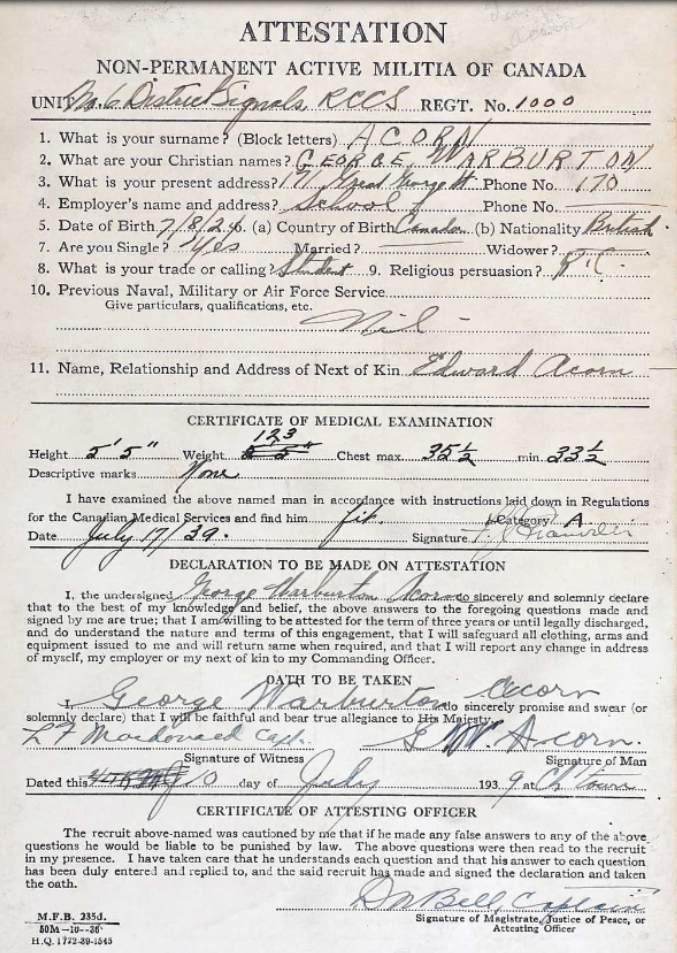 ATTESTATION
NON-PERMANENT ACTIVE MILITIA OF CANADA
UNIT No. 6 District Signals, RCCS REGT. No. 1000
1. What is your surname? (Block letters) ACORN
2. What are your Christian names? GEORGE WARBURTON
3. What is your present address? 171 Great George St. Phone No. 170
4. Employer's name and address? School Phone No.
5. Date of Birth 7/8/ (a) Country of Birth Canada (b) Nationality British.
7. Are you Single? Yes Married? Widower?
8. What is your trade or calling? Student 9. Religious persuasion? R.C.
10. Previous Naval, Military or Air Force Service
Give particulars, qualifications, etc.
Nil -
11. Name, Relationship and Address of Next of Kin Edward Acorn
CERTIFICATE OF MEDICAL EXAMINATION
123
Height 5'5" Weight Chest max. 35½ min. 33½
Descriptive marks None
I have examined the above named man in accordance with instructions laid down in Regulations
for the Canadian Medical Services and find him fit. Category A
Date July 17/39. Signature
DECLARATION TO BE MADE ON ATTESTATION
I, the undersigned George Warburton Acorn do sincerely and solemnly declare
that to the best of my knowledge and belief, the above answers to the foregoing questions made and
signed by me are true; that I am willing to be attested for the term of three years or until legally discharged,
and do understand the nature and terms of this engagement, that I will safeguard all clothing, arms and
equipment issued to me and will return same when required, and that I will report any change in address
of myself, my employer or my next of kin to my Commanding Officer.
OATH TO BE TAKEN
I, George Warburton Acorn do sincerely promise and swear (or
solemnly declare) that I will be faithful and bear true allegiance to His Majesty.
L F Macdonald Capt. G W. Acorn.
Signature of Witness Signature of Man
Dated this 10 day of July 1939 at Ch'town
CERTIFICATE OF ATTESTING OFFICER
The recruit above-named was cautioned by me that if he made any false answers to any of the above
questions he would be liable to be punished by law. The above questions were then read to the recruit
in my presence. I have taken care that he understands each question and that his answer to each question
has been duly entered and replied to, and the said recruit has made and signed the declaration and taken
the oath.
Bell, Captain
Signature of Magistrate, Justice of Peace, or
Attesting Officer
M.F.B. 235d.
50M-10-36
H.Q. 1772-39-1545